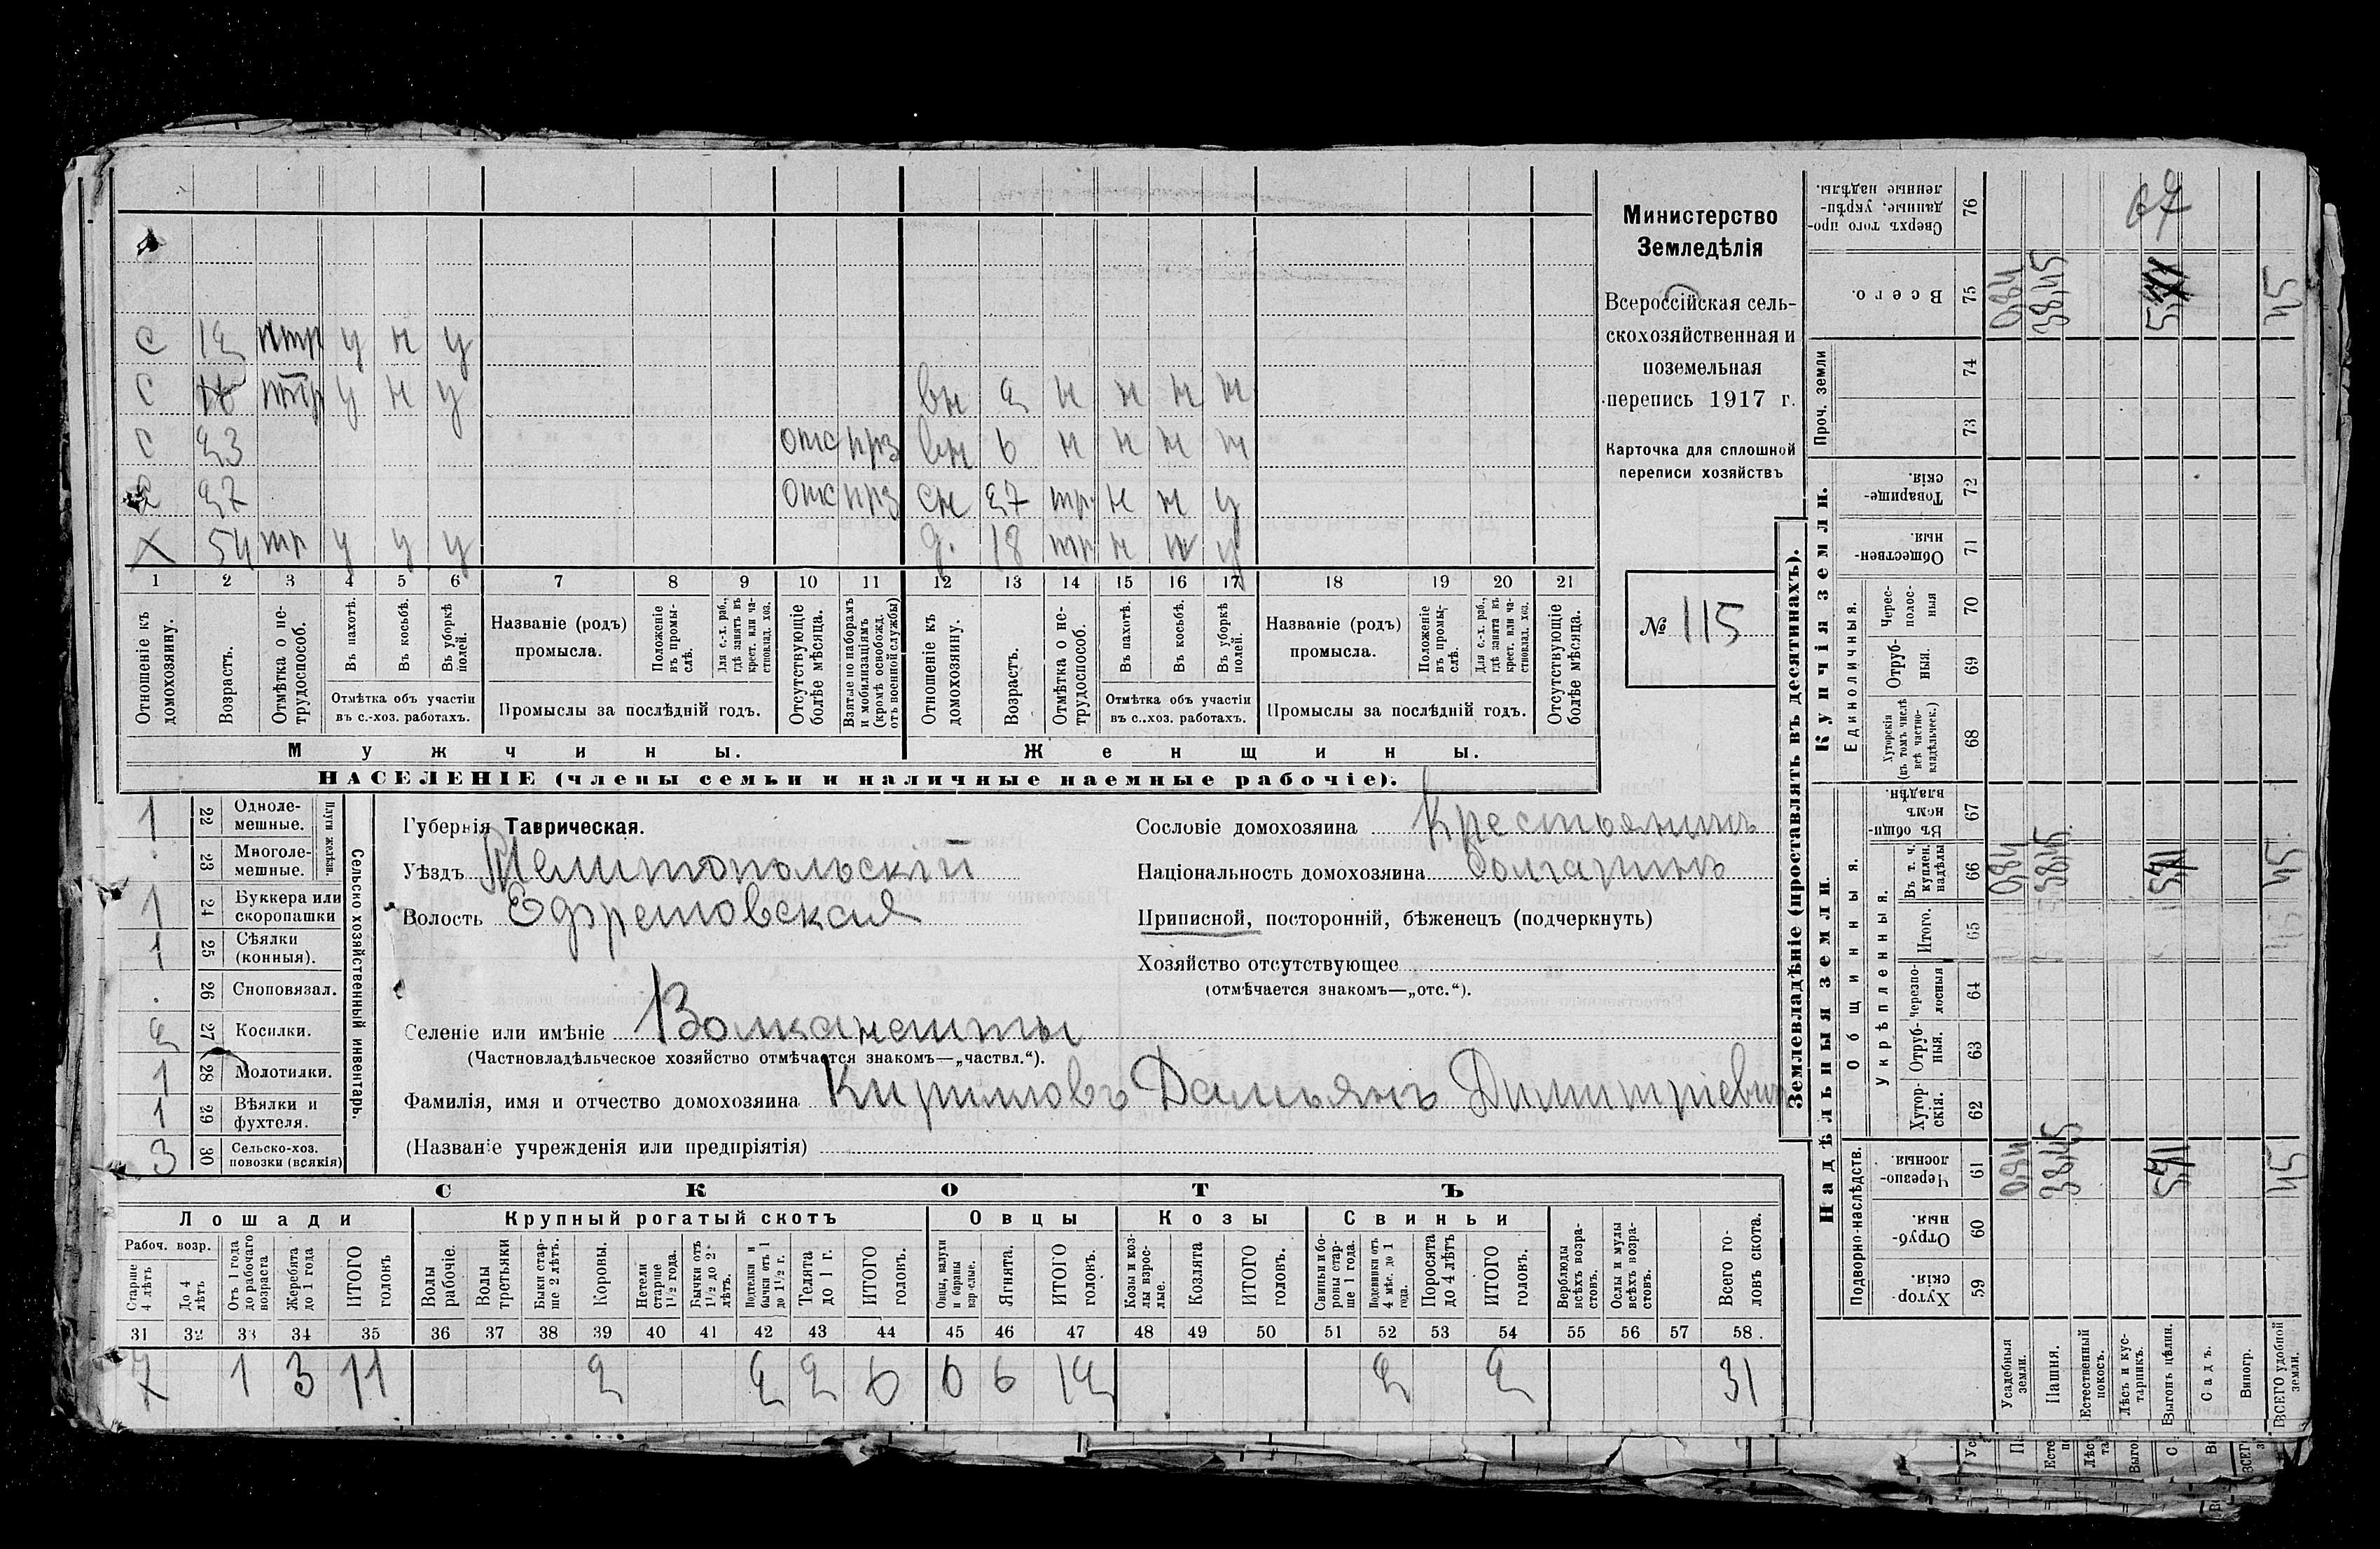 С 12 птр у н у
С птр у н у вн 2 н н н н
С 23 отс прз вн 6 н н н н
С 27 отс прз сн 27 тр н н у
Х 54 тр у у у д. 18 тр н н у
1 2 3 4 5 6 7 8 9 10 11 12 13 14 15 16 17 18 19 20 21
Отношеніе къ домохозяину.
Возрастъ.
Отмѣтка о не-трудоспособ.
Въ пахотѣ.
Въ косьбѣ.
Въ уборкѣ полей.
Отмѣтка объ участіи
въ с.-хоз. работахъ.
Названіе (родъ)
промысла.
Положеніе въ промы-слѣ.
Для с.-х. раб., гдѣ занятъ въ крест. или ча-стновлад. хоз.
Промыслы за послѣдній годъ.
Отсутствующіе болѣе мѣсяца.
Взятые по наборамъ и мобилизаціямъ (кромѣ освобожд. отъ военной службы)
Отношеніе къ домохозяину.
Возрастъ.
Отмѣтка о не-трудоспособ.
Въ пахотѣ.
Въ косьбѣ.
Въ уборкѣ полей.
Отмѣтка объ участіи
въ с.-хоз. работахъ.
Названіе (родъ)
промысла.
Положеніе въ промы-слѣ.
Для с.-х. раб., гдѣ занята въ крест. или ча-стновлад. хоз.
Промыслы за послѣдній годъ.
Отсутствующіе болѣе мѣсяца.
Мужчины. Женщины.
НАСЕЛЕНІЕ (члены семьи и наличные наемные рабочіе).
Министерство
Земледѣлія
Всероссійская сель-
скохозяйственная и
поземельная
перепись 1917 г.
Карточка для сплошной
переписи хозяйствъ
№ 115
1 22 Одноле-мешные.
23 Многоле-мешные.
Плуги желѣзн.
1 24 Буккера или скоропашки
1 25 Сѣялки (конныя).
26 Сноповязал.
2 27 Косилки.
1 28 Молотилки.
1 29 Вѣялки и фухтеля.
3 30 Сельско-хоз. повозки (всякія)
Сельско-хозяйственный инвентарь.
Губернія Таврическая.
Уѣздъ Мелитопольскій
Волость Ефремовская
Селеніе или имѣніе Волканешты
(Частновладѣльческое хозяйство отмѣчается знакомъ—„частвл.“).
Фамилія, имя и отчество домохозяина Кирилловъ Дамьянъ Димитріевич
(Названіе учрежденія или предпріятія)
Сословіе домохозяина Крестьянинъ
Національность домохозяина болгаринъ
Приписной, посторонній, бѣженецъ (подчеркнуть)
Хозяйство отсутствующее
(отмѣчается знакомъ—„отс.“).
СКОТЪ
Лошади Крупный рогатый скотъ Овцы Козы Свиньи
Рабоч. возр.
Старше 4 лѣтъ
До 4 лѣтъ
Отъ 1 года до рабочаго возраста
Жеребята до 1 года
ИТОГО головъ
Волы рабочіе.
Волы третьяки
Быки стар-ше 2 лѣтъ.
Коровы.
Нетели старше 1½ года.
Бычки отъ 1½ до 2 лѣтъ.
Подтелки и бычки отъ 1 до 1½ г.
Телята до 1 г.
ИТОГО головъ.
Овцы, валухи и бараны взрослые.
Ягнята.
ИТОГО головъ.
Козы и коз-лы взрос-лые.
Козлята
ИТОГО головъ.
Свиньи и бо-ровы стар-ше 1 года.
Подсвинки отъ 4 мѣс. до 1 года.
Поросята до 4 лѣтъ
ИТОГО головъ.
Верблюды всѣхъ возра-стовъ.
Ослы и мулы всѣхъ возра-стовъ.
Всего го-ловъ скота.
31 32 33 34 35 36 37 38 39 40 41 42 43 44 45 46 47 48 49 50 51 52 53 54 55 56 57 58.
7 1 3 11 2 2 2 6 6 6 12 2 2 31
Землевладѣніе (проставлять въ десятинахъ).
Надѣльныя земли. Купчія земли.
Подворно-наслѣдств.
Общинныя.
Укрѣпленныя.
Единоличныя.
Проч. земли
Хутор-скія. 59
Отруб-ныя. 60
Черезпо-лосныя 61 0,84 38,45 45
Хутор-скія. 62
Отруб-ныя. 63
Черезпо-лосныя 64
Итого. 65
Въ т. ч. куплен. надѣлы 66 0,84 38,45 45
Въ общи-номъ владѣн. 67
Хуторскія (въ томъ числѣ всѣ частно-владѣльческ.) 68
Отруб-ныя. 69
Черес-полос-ныя 70
Обществен-ныя. 71
Товарище-скія. 72
73
74
Всего. 75 0,84 38,45 45
Сверхъ того про-данные, укрѣп-ленные надѣлы. 76
67
Усадебныя земли.
Пашня.
Естественный покосъ.
Лѣсъ и кус-тарникъ.
Выгонъ цѣлин.
Садъ.
Виногр.
ВСЕГО удобной земли.